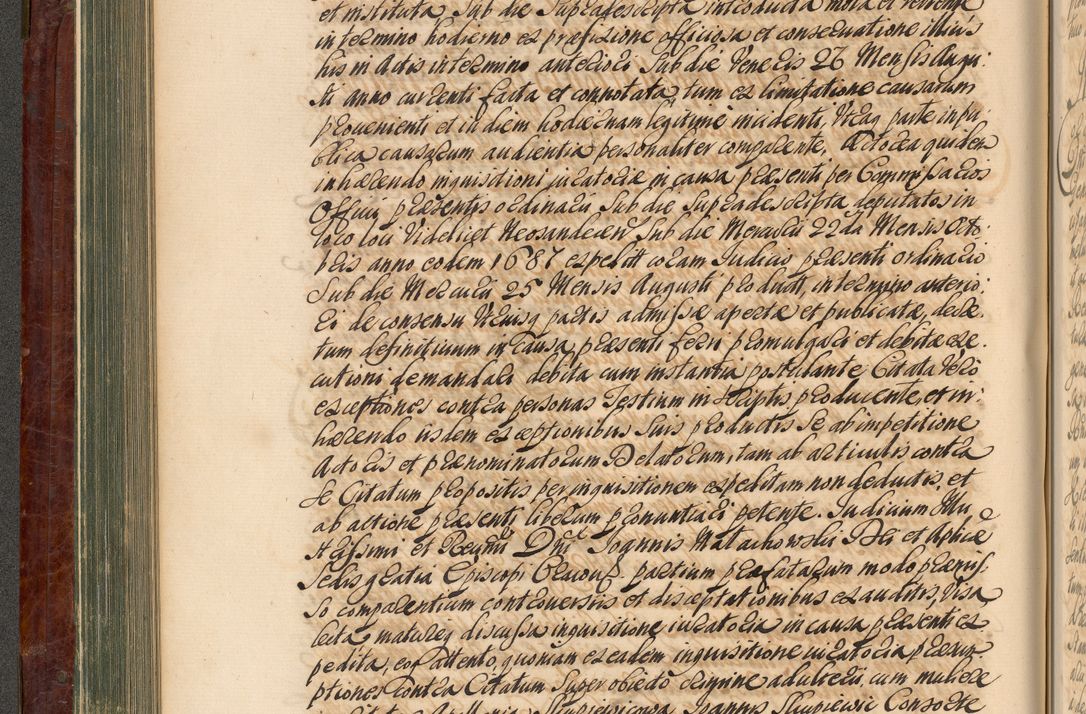 et instituta Sub die Supradescripta introducta mota et
in termino hodierno ex præfixione officiosa et conservatione illius
his in Actis in termino anteriori Sub die Veneris 26 Mensis Augu:
sti anno currenti facta et connotata, tum ex limitatione causarum
provenienti et in diem hodiernam legitime incidenti, Utraq parte in pu:
blica causarum audientia personaliter comparente, Actorea quidem
inhærendo inquisitioni juratoriæ in causa præsenti per Commissarios
Officii præsentis ordinarii Sub die Supradescripta deputatos in
loco loci Videlicet Neosandecen Sub die Mercurii 22da Mensis Octo
bris anno eodem 1687 expedit coram Judicio præsenti ordinario
Sub die Mercurii 25 Mensis Augusti product, in termino anterio:
ri de consensu Utriusq partis admissæ apertæ et publicatæ, decre:
tum definitivum in causa præsenti ferri promulgari et debitæ exe:
cutioni demandari debita cum instantia postulante, Citata Vero
exceptiones contra personas Testium in scriptis producente, et in:
hærendo iisdem exceptionibus suis productis Se ab impetitione
Actoris et prænominatorum Delatorum, tam ab articulis contra
Se Citatum propositis per inquisitionem expeditam non deductis, et
ab actione præsenti liberum pronuntiari petente. Judicium Illu
strissimi et Reverendissimi Dni Joannis Małachowski Dei et Aplicæ
Sedis gratia Episcopi Cracov. partium præfatarum modo præmis:
so comparentium controversiis et disceptationibus exauditis, Visa,
lecta matureq discussa inquisitione juratoria in causa præsenti ex
pedita, eoq attento, quoniam ex eadem inquisitione juratoria præsum
ptiones contra Citatum Super obiecto crimine adulterii, cum muliere
Joannis Słupiewic Consorte